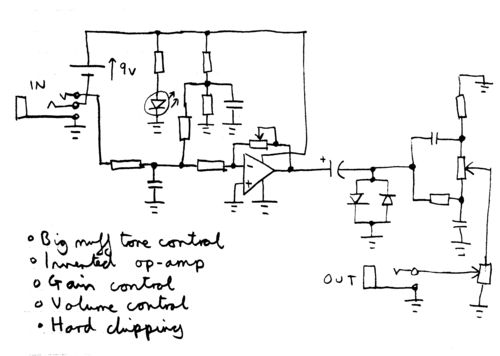 IN
9v
OUT
Big muff tone control
Inverted op-amp
Gain control
Volume control
Hard clipping